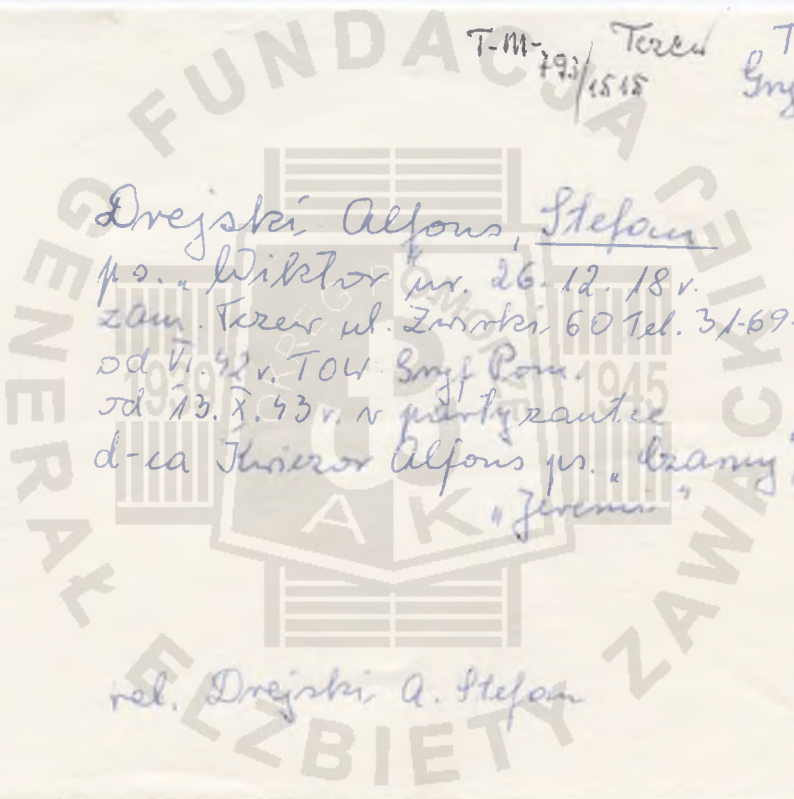 T-M-793/1515 Tczew T
Gry
Drejski Alfons, Stefan
ps. „Wiktor" ur. 26.12.18 r.
zam. Tczew ul. Żwirki 60 Tel. 31-69-
od VI.42 r. TOW Gryf Pom.
od 13.X.43 r. w partyzantce
d-ca Kwiczor Alfons ps. „Czarny"
„Jeremi"
rel. Drejski A. Stefan
FUNDACJA GENERAŁ ELŻBIETY ZAWACKIEJ
OKRĘG POMORZE
1939 1945
AK